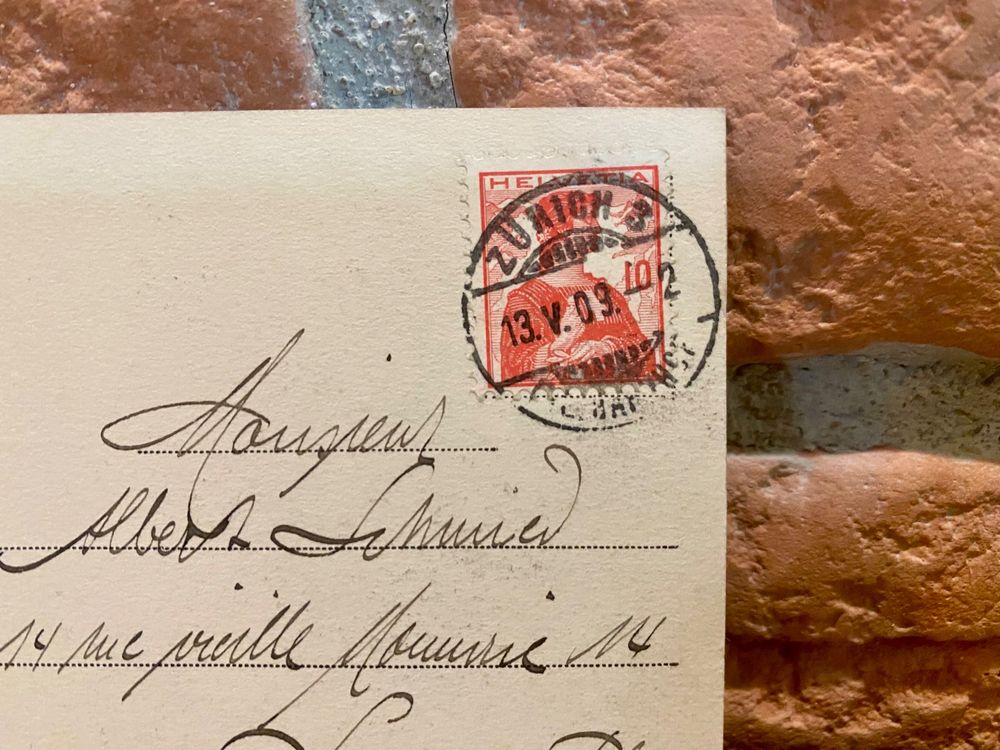 HELVETIA
ZÜRICH 3
10
13.V.09.-2
Monsieur
Albert Schmied
14 rue vieille Monnaie 14